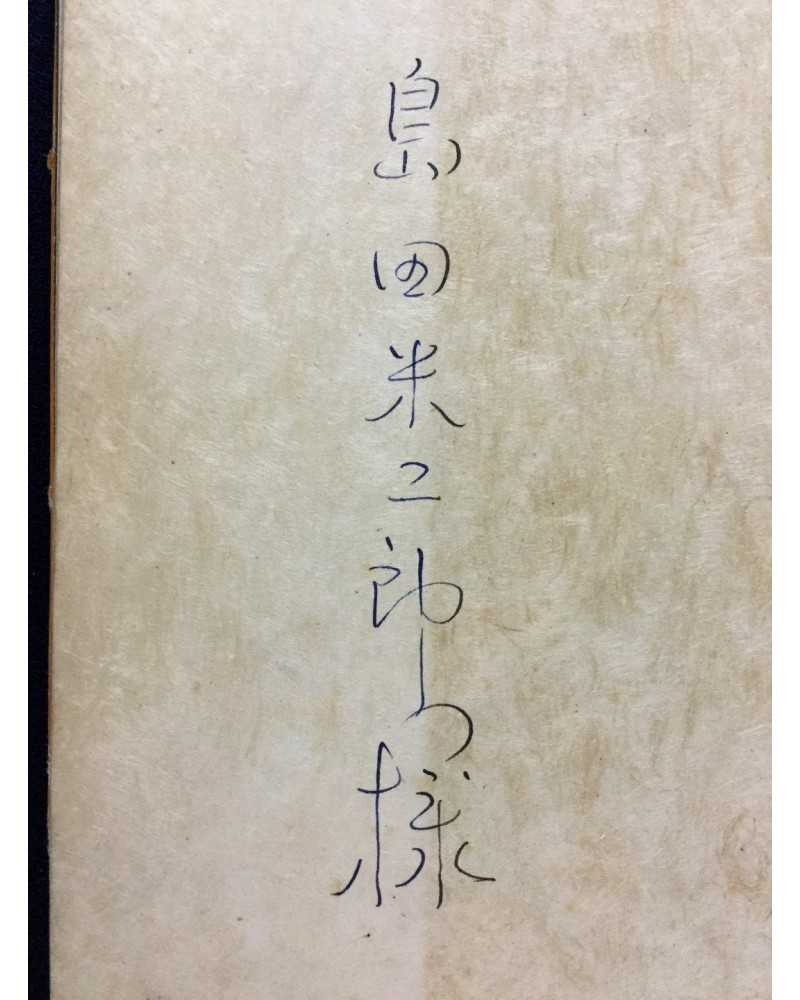 島田米二郎様